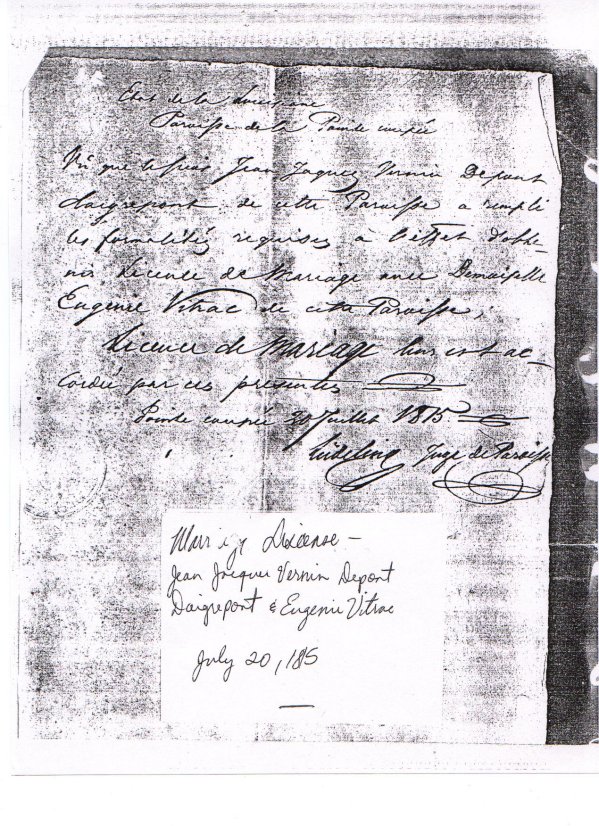 Etat de la Louisiane
Paroisse de la Pointe coupée
Vû que le sieur Jean Jaques Vernin Depont
daigrepont de cette Paroisse a rempli
les formalités requises à l'effet d'obte-
nir Licence de Mariage avec Demoiselle
Eugenie Vitrac de cette Paroisse;
Licence de Mariage leur est ac-
cordée par ces presentes
Pointe coupée 20 Juillet 1815
Ludeling Juge de Paroisse
Marriage License -
Jean Jacques Vernin Depont
Daigrepont & Eugenie Vitrac
July 20, 185